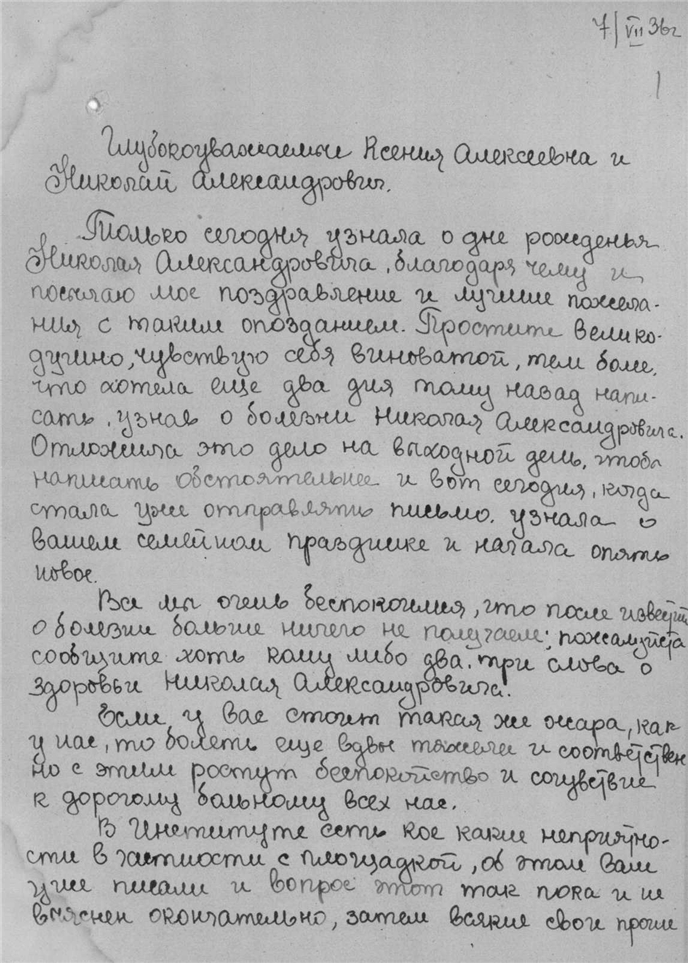 7/VII 36г
1
Глубокоуважаемые Ксения Алексеевна и
Николай Александрович.
Только сегодня узнала о дне рожденья
Николая Александровича, благодаря чему и
посылаю мое поздравление и лучшие пожела-
ния с таким опозданием. Простите велико-
душно, чувствую себя виноватой, тем более,
что хотела еще два дня тому назад напи-
сать, узнав о болезни Николая Александровича.
Отложила это дело на выходной день, чтобы
написать обстоятельнее и вот сегодня, когда
стала уже отправлять письмо, узнала о
вашем семейном празднике и начала опять
новое.
Все мы очень беспокоимся, что после известий
о болезни больше ничего не получаем; пожалуйста
сообщите хоть кому либо два, три слова о
здоровьи Николая Александровича.
Если у вас стоит такая же жара, как
у нас, то болеть еще вдвое тяжелее и соответствен
но с этим ростут беспокойство и сочувствие
к дорогому больному всех нас.
В Институте есть кое какие неприятно-
сти в частности с площадкой, об этом Вам
уже писали и вопрос этот так пока и не
выяснен окончательно, затем всякие свои